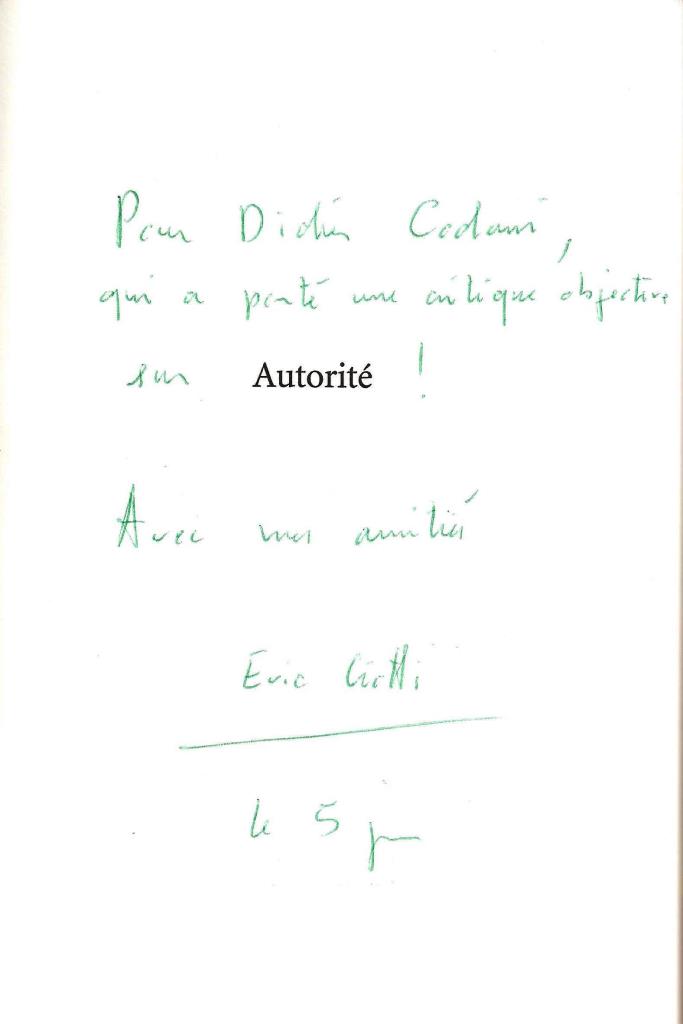 Pour Didier Codani,
qui a porté une critique objective
sur Autorité !
Avec mes amitiés
Eric Ciotti
le 5